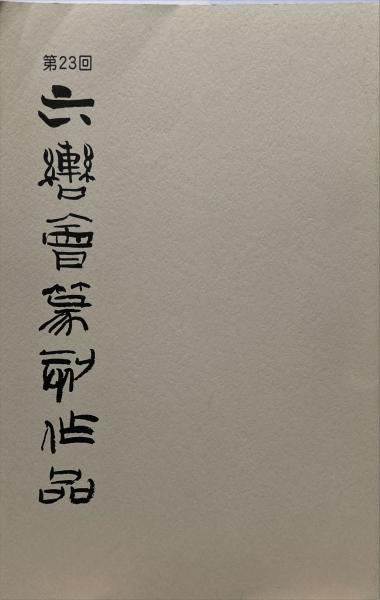 第23回
六轡會篆刻作品